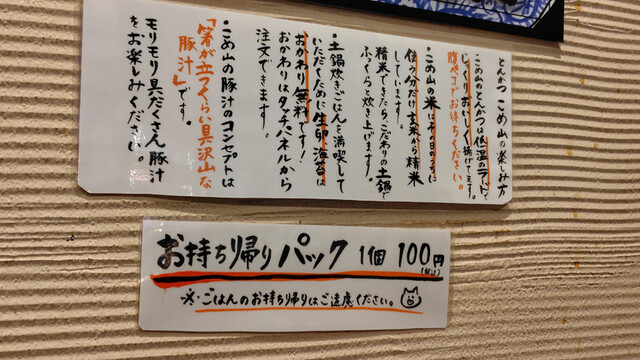 とんかつ こめ山の楽しみ方
・こめ山のとんかつは低温のラードで
じっくりおいしく揚げてます。
腹ペコでお待ちください。
・こめ山の米はその日のうちに
使う分だけ玄米から精米
しています。
精米できたら、こだわりの土鍋で
ふっくらと炊き上げます。
・土鍋炊きごはんを満喫して
いただくために生卵、海苔は
おかわり無料です!
おかわりはタッチパネルから
注文できます。
・こめ山の豚汁のコンセプトは
「箸が立つくらい具沢山な
豚汁」です。
モリモリ具だくさん豚汁
をお楽しみください。
お持ち帰りパック 1個 100円
(税込)
※・ごはんのお持ち帰りはご遠慮ください。